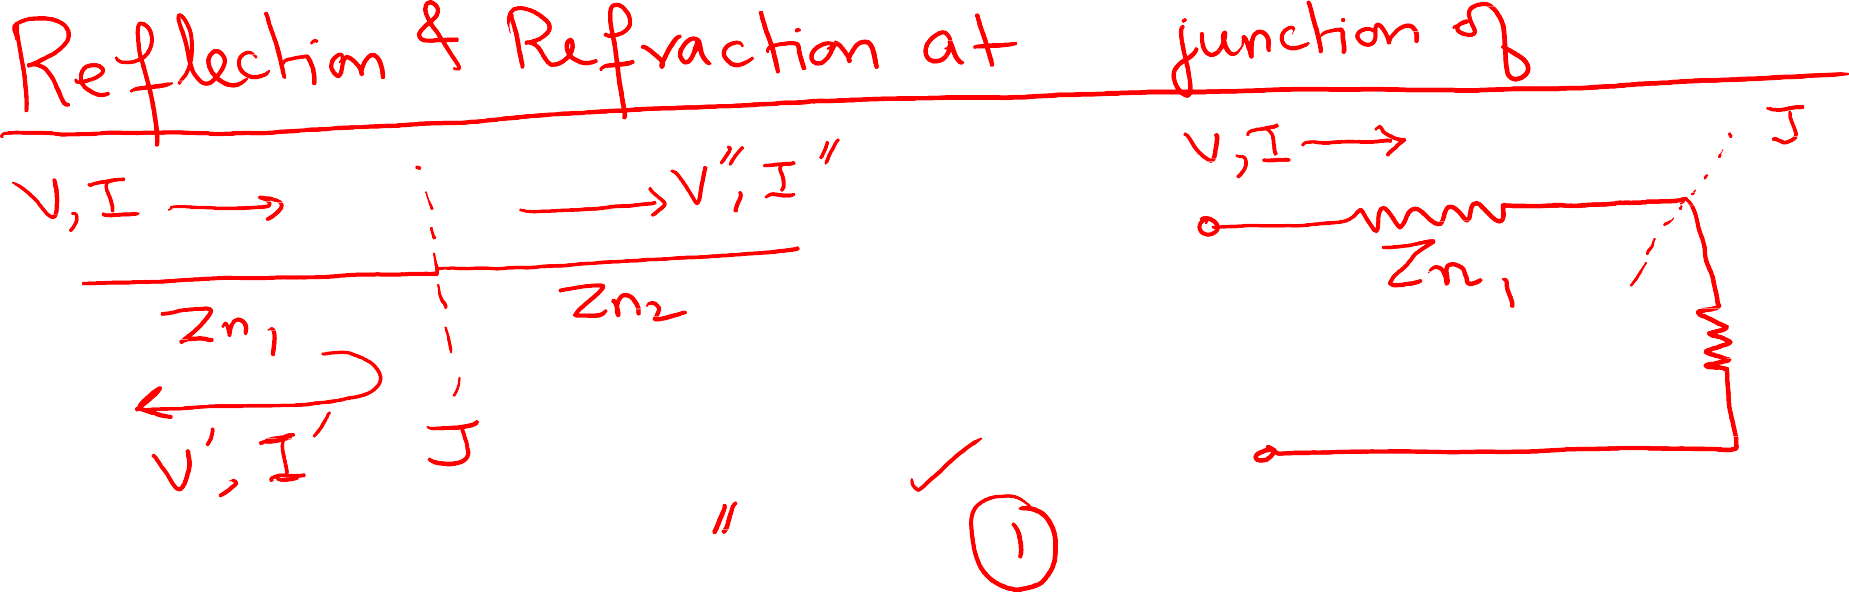 Reflection & Refraction at junction of
V, I → → V'', I'' V, I → J
Zn1 Zn2 Zn1
V', I' J
"
✓
1